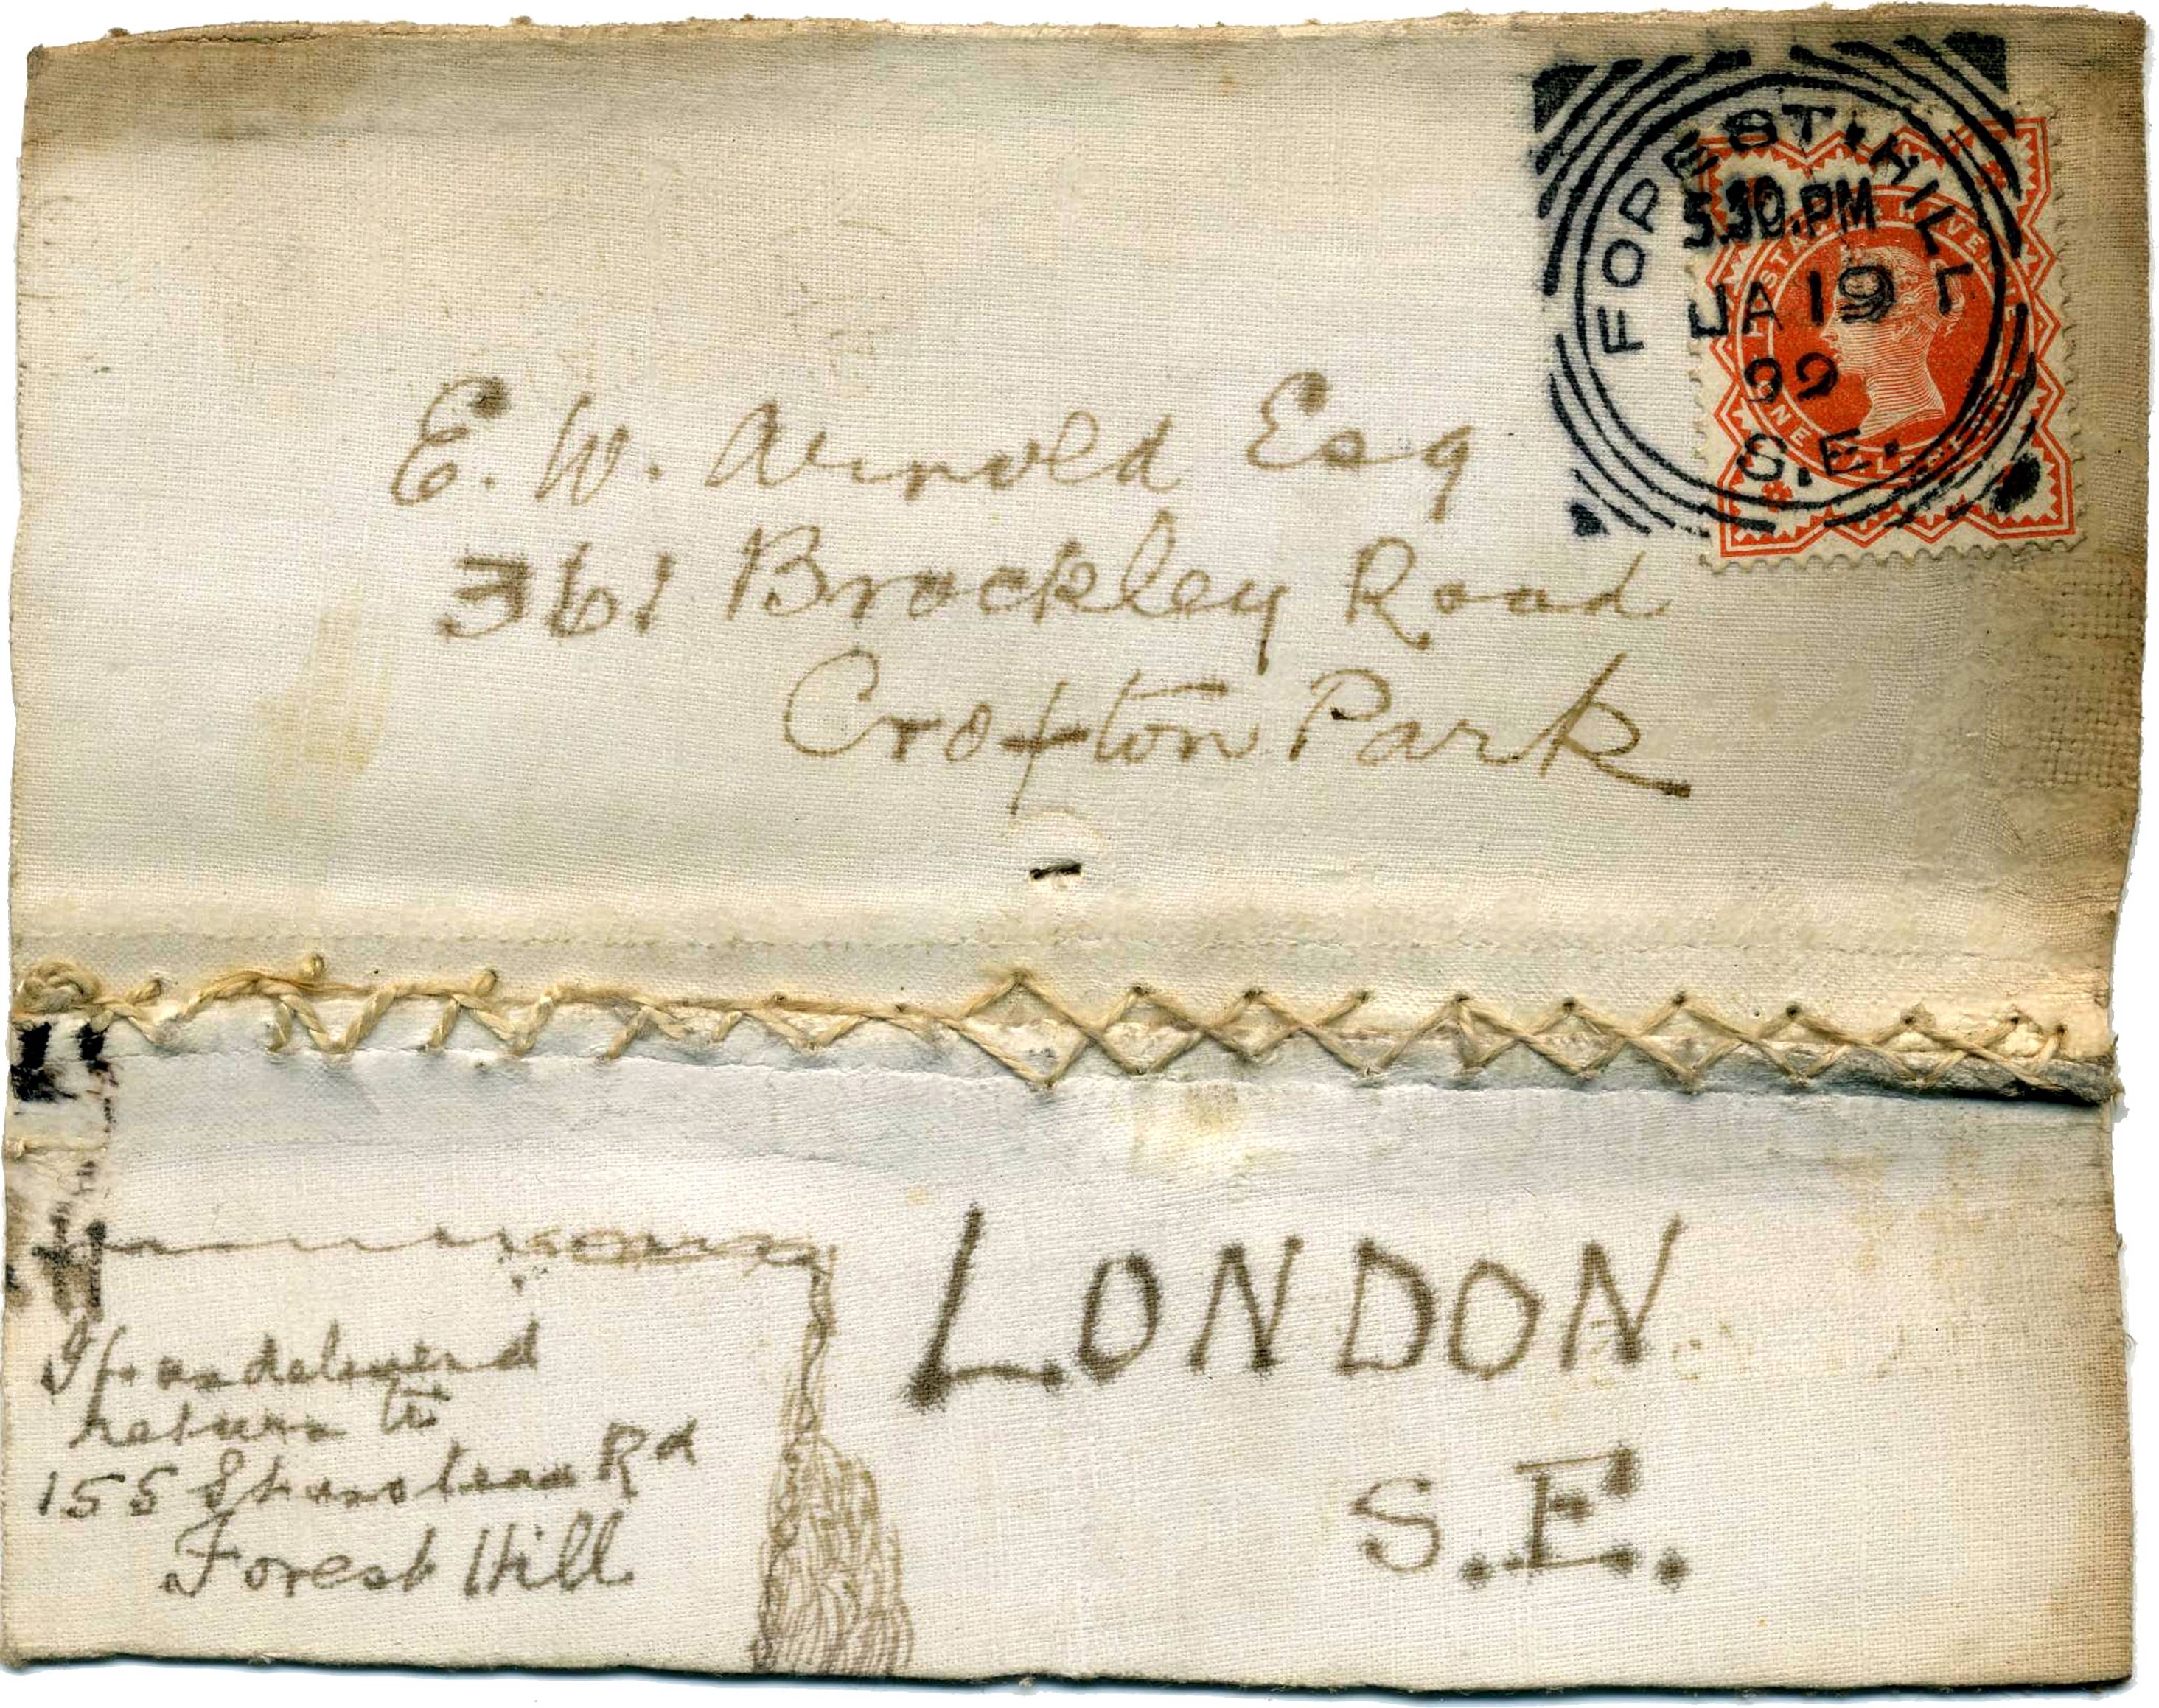 FOREST HILL
5.30.PM
JA 19
99
S.E.
POSTAGE & REVENUE
ONE HALFPENNY
E. W. Arnold Esq
361 Brockley Road
Crofton Park
LONDON
S.E.
If undelivered
return to
155 Rd
Forest Hill